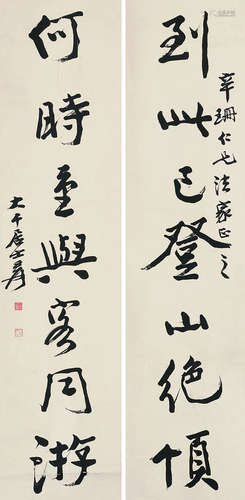 到此已登山絕頂
辛珊仁兄法家正之
何時重與客同游
大千居士爰